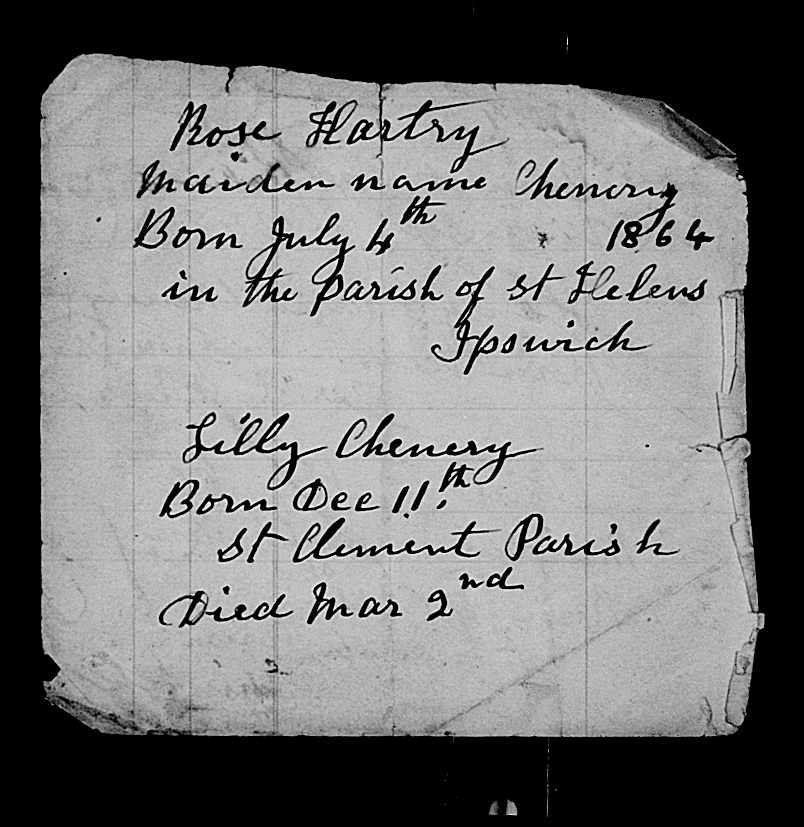 Rose Hartry
Maiden name Chenery
Born July 4th 1864
in the parish of St Helens
Ipswich
Lilly Chenery
Born Dec 11.th
St Clement Parish
Died Mar 2nd